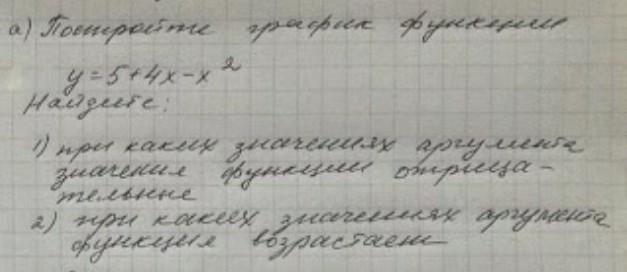 а) Постройте график функции
y = 5 + 4x - x²
Найдите:
1) при каких значениях аргумента
значения функции отрица-
тельные
2) при каких значениях аргумента
функция возрастает